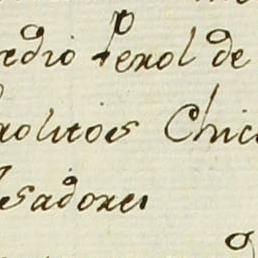 edio Perol de
aolitos Chic
sadores